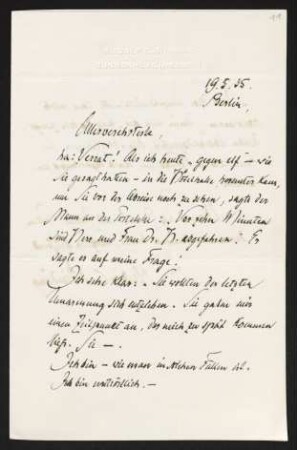 19.5.35.
Berlin.
Allerverehrteste,
ha: Verrat! Als ich heute „gegen elf" – wie
Sie gesagt hatten – in die Vorhalle herunter kam,
um Sie vor der Abreise noch zu sehen, sagte der
Mann an der : „Vor zehn Minuten
sind Herr und Frau Dr. abgefahren." Er
sagte es auf meine Frage!
Ich sehe klar: „Sie wollten der letzten
Umarmung sich entziehen. Sie gaben mir
einen Zeitpunkt an, der mich zu spät kommen
ließ. Sie –.
Ich bin – wie man in solchen Fällen ist.
Ich bin untröstlich. –